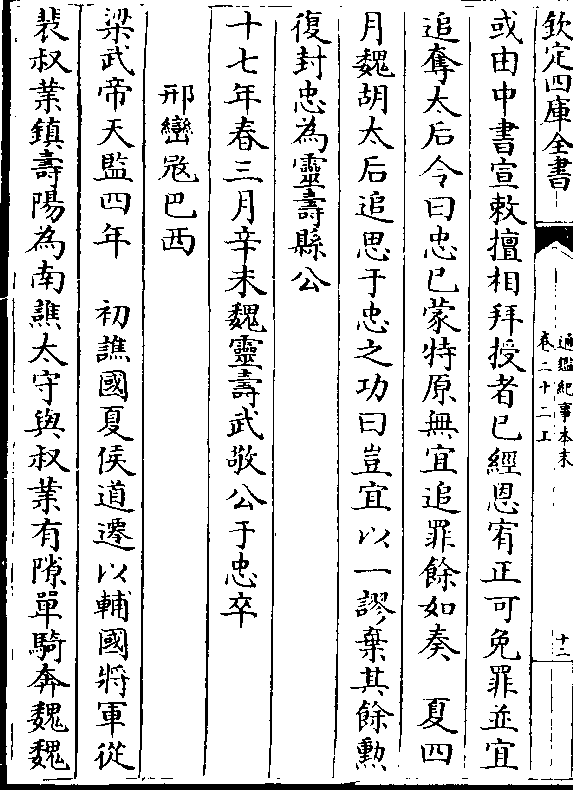 欽定四庫全書
通鑑紀事本末
卷二十二上
十二
或由中書宣敕擅相拜授者已經恩宥正可免罪並宜
追奪太后令曰忠已蒙特原無宜追罪餘如奏　夏四
月魏胡太后追思于忠之功曰豈宜以一謬棄其餘勲
復封忠為靈壽縣公
十七年春三月辛未魏靈壽武敬公于忠卒
邢巒寇巴西
梁武帝天監四年　初譙國夏侯道遷以輔國將軍從
裴叔業鎮壽陽為南譙太守與叔業有隙單騎奔魏魏